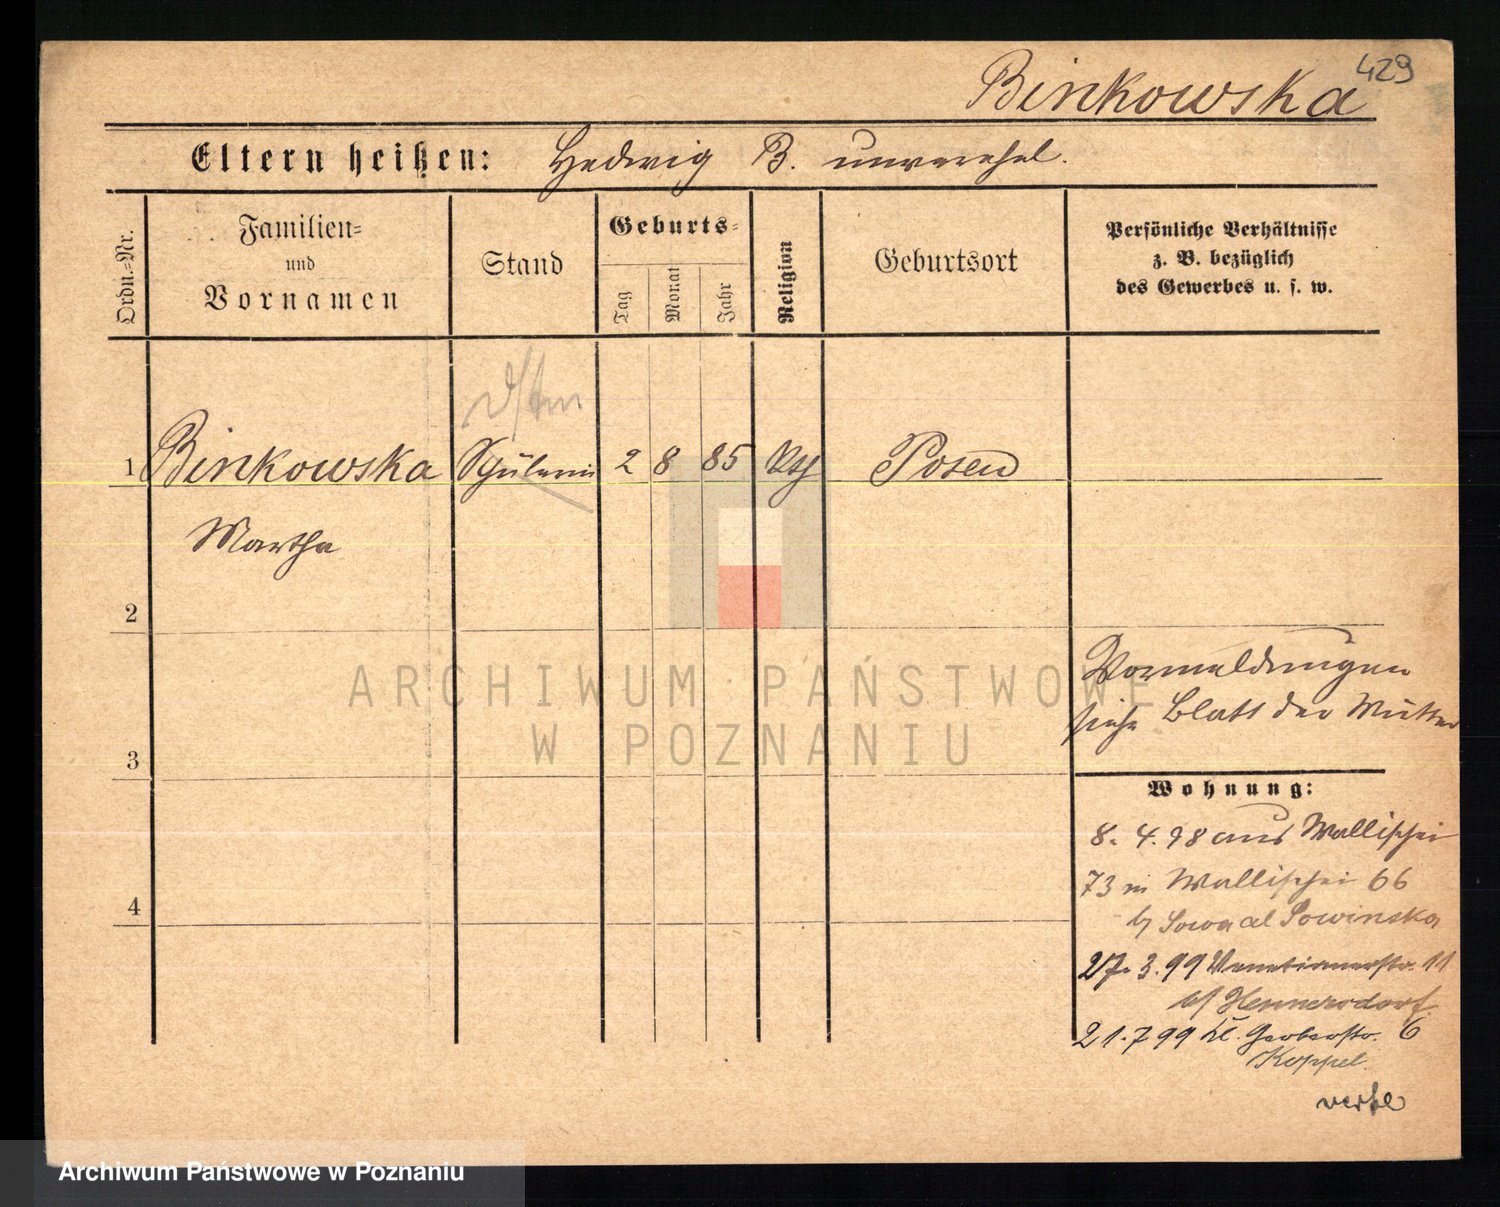 429
Binkowska
Eltern heißen: Hedwig B. unverehel.
Ordn.-Nr.
Familien-
und
Vornamen
Stand
Geburts-
Tag
Monat
Jahr
Religion
Geburtsort
Persönliche Verhältnisse
z. B. bezüglich
des Gewerbes u. s. w.
1 Binkowska Schülerin 2 8 85 kth Posen
Martha
2
Vormeldungen
siehe Blatt der Mutter
3
Wohnung:
8. 4. 98 aus Wallischei
73 in Wallischei 66
b/ Sowa al Sowinska
4
27. 3. 99 Venetianerstr. 11
b/ Hennersdorf
21. 7 99 Kl. Gerberstr. 6
Koppel
ARCHIWUM PAŃSTWOWE
W POZNANIU
Archiwum Państwowe w Poznaniu